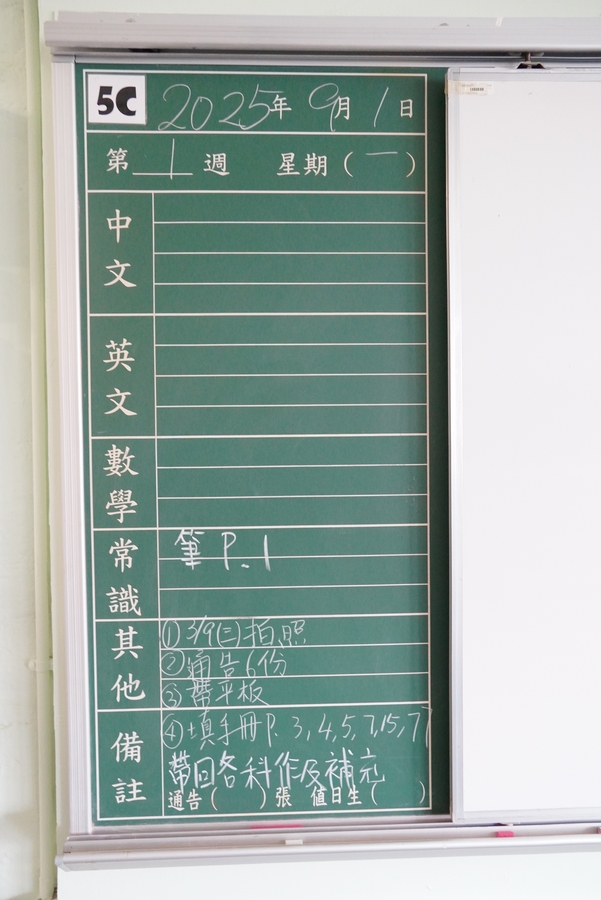 5C 2025年 9月 1日
第 1 週 星期(一)
中文
英文
數學
常識 筆 P. 1
其他 ① 3/9(三)拍照
② 通告6份
③ 帶平板
備註 ④ 填手冊P. 3,4,5,7,15,77
帶回各科作及補充
通告( )張 值日生( )